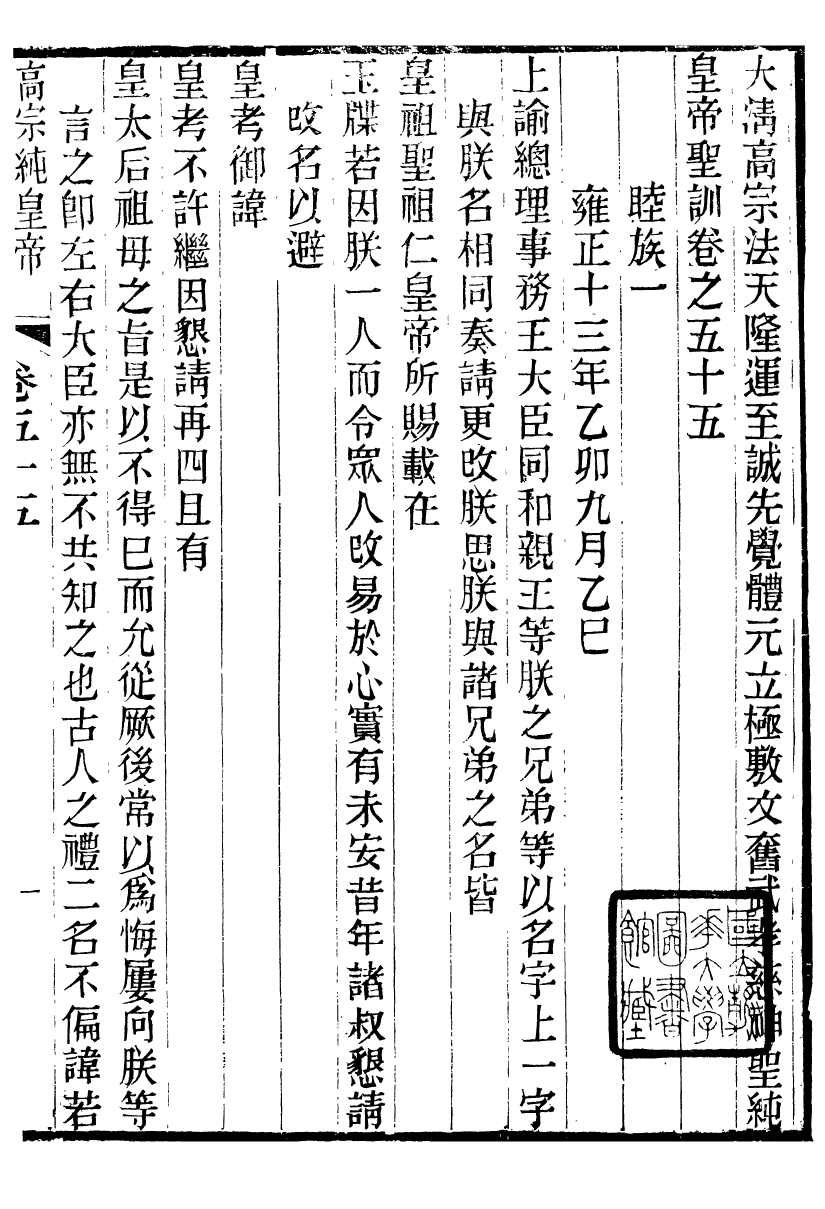 大清高宗法天隆運至誠先覺體元立極敷文奮武孝慈神聖純
皇帝聖訓卷之五十五
睦族一
雍正十三年乙卯九月乙巳
上諭總理事務王大臣同和親王等朕之兄弟等以名字上一字
與朕名相同奏請更改朕思朕與諸兄弟之名皆
皇祖聖祖仁皇帝所賜載在
玉牒若因朕一人而令眾人改易於心實有未安昔年諸叔懇請
改名以避
皇考御諱
皇考不許繼因懇請再四且有
皇太后祖母之旨是以不得已而允從厥後常以為悔屢向朕等
言之卽左右大臣亦無不共知之也古人之禮二名不偏諱若
高宗純皇帝 卷五十五 一
國立清華大學圖書館藏